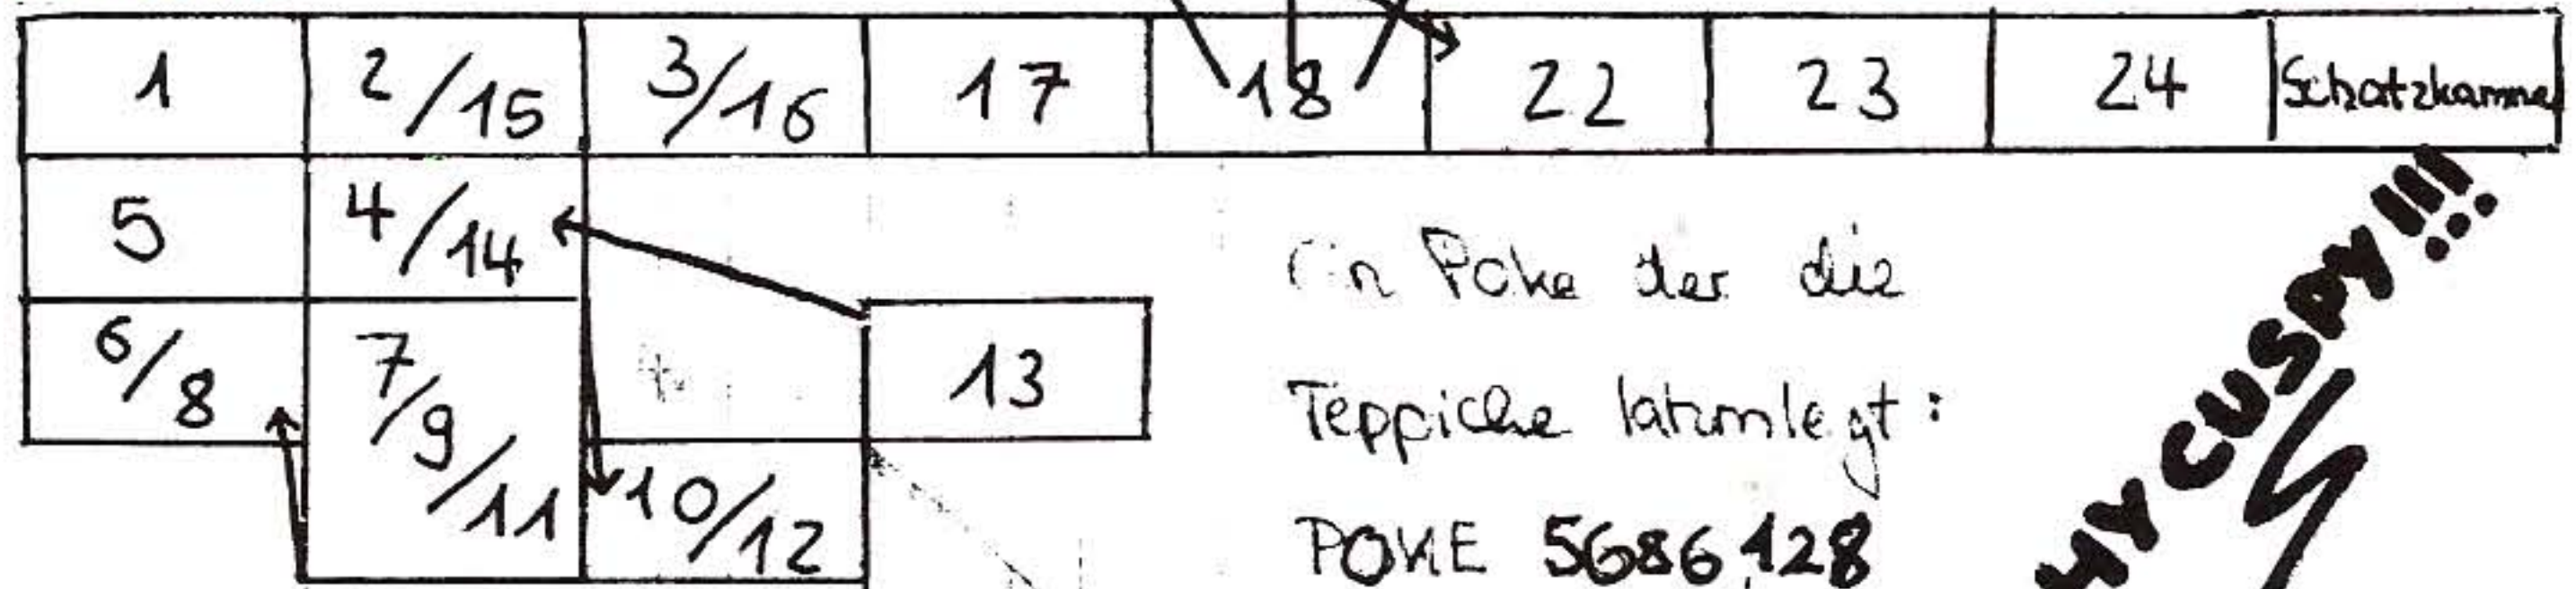 1 2/15 3/16 17 18 22 23 24 Schatzkamme
5 4/14
6/8 7/9/11 13
10/12
Poke der die
Teppiche lahmlegt:
POKE 5686,128
MY CUSPY!!!